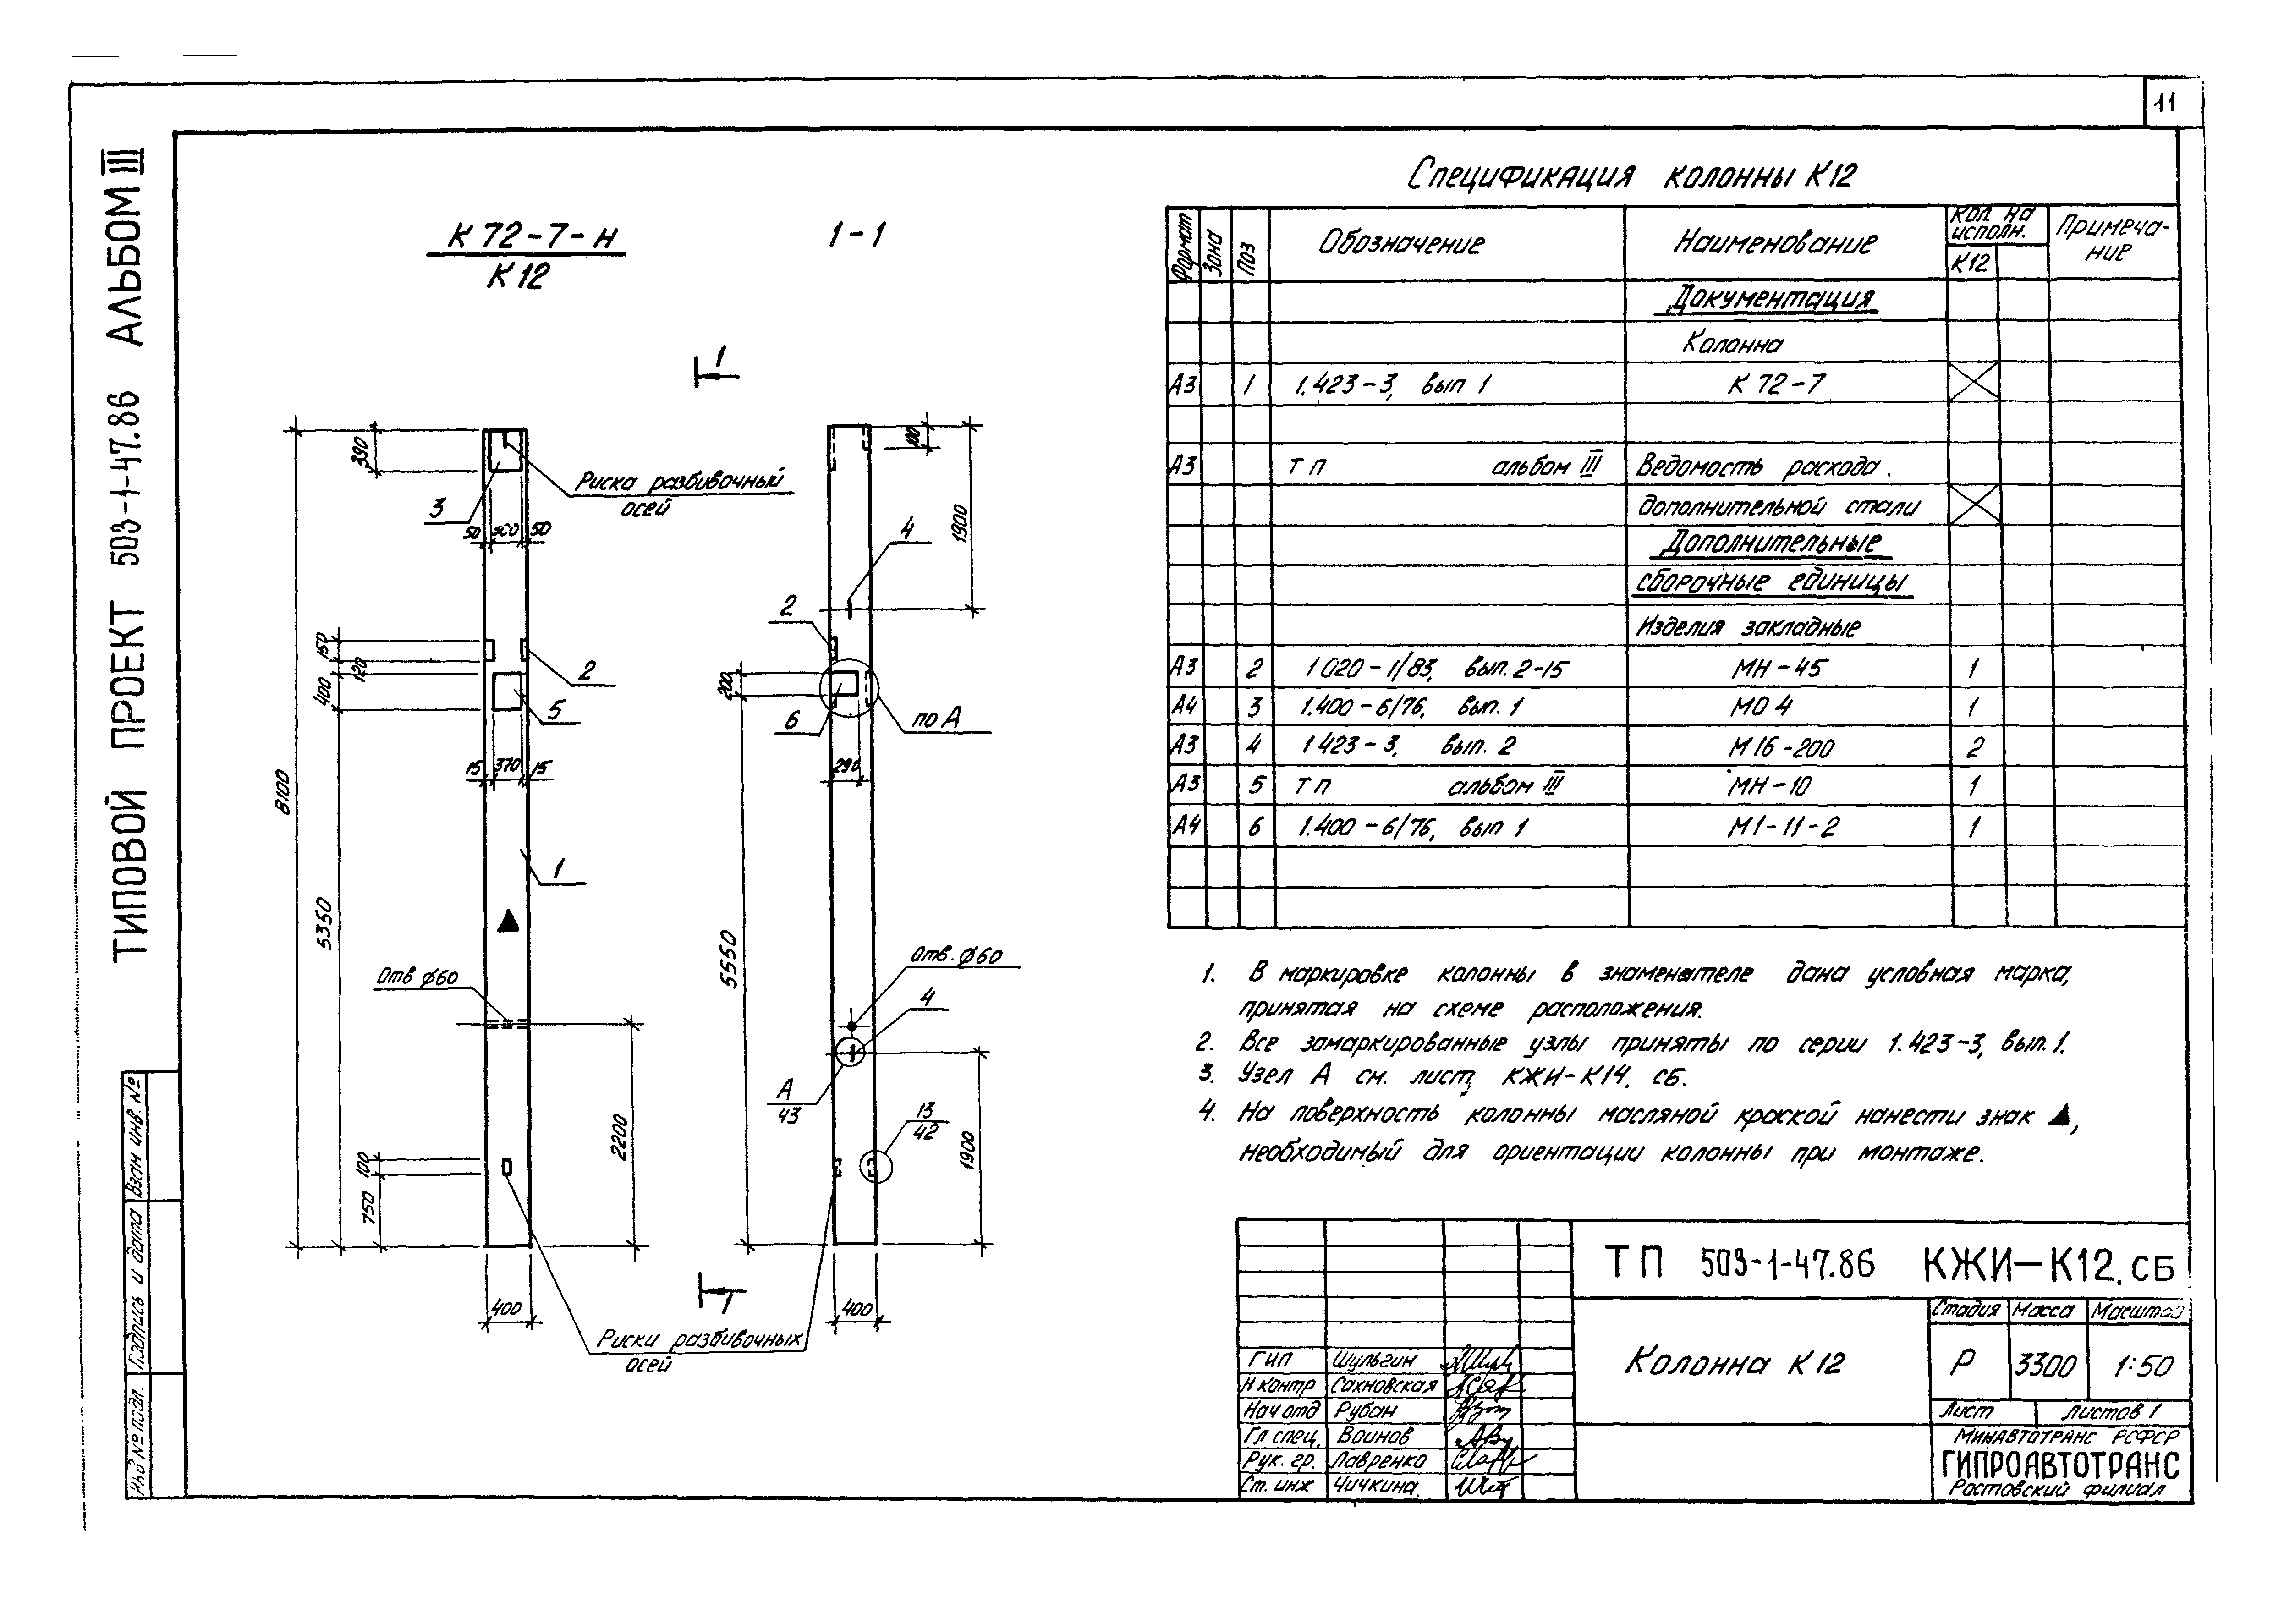 11
ТИПОВОЙ ПРОЕКТ 503-1-47.86 АЛЬБОМ III
К 72-7-н
К 12
1-1
1
390
3
Риска разбивочный
осей
50 300 50
150
120
400
2
5
15 370 15
8100
5350
1
Отв ϕ60
2200
100
750
400
1
100
1900
4
2
200
6
по А
290
5550
Отв. ϕ60
4
А
43
13
42
1900
400
Риски разбивочных
осей
Спецификация колонны К12
Формат Зона Поз Обозначение Наименование Кол. на исполн. Примеча-
ние
К12
Документация
Колонна
А3 1 1.423-3, вып 1 К 72-7
А3 ТП альбом III Ведомость расхода.
дополнительной стали
Дополнительные
сборочные единицы
Изделия закладные
А3 2 1 020-1/83, вып. 2-15 МН-45 1
А4 3 1.400-6/76, вып. 1 МО 4 1
А3 4 1 423-3, вып. 2 М 16-200 2
А3 5 ТП альбом III МН-10 1
А4 6 1.400-6/76, вып 1 М1-11-2 1
1. В маркировке колонны в знаменателе дана условная марка,
принятая на схеме расположения.
2. Все замаркированные узлы приняты по серии 1.423-3, вып. 1.
3. Узел А см. лист КЖИ-К14. СБ.
4. На поверхность колонны масляной краской нанести знак ▲,
необходимый для ориентации колонны при монтаже.
ТП 503-1-47.86 КЖИ-К12.СБ
Колонна К12
Стадия Масса Масштаб
Р 3300 1:50
Лист Листов 1
Минавтотранс РСФСР
ГИПРОАВТОТРАНС
Ростовский филиал
ГИП Шульгин
Н контр Сахновская
Нач отд Рубан
Гл спец. Воинов
Рук. гр. Лавренко
Ст. инж Чичкина.
Взам инв. №
Подпись и дата
Инв № подл.